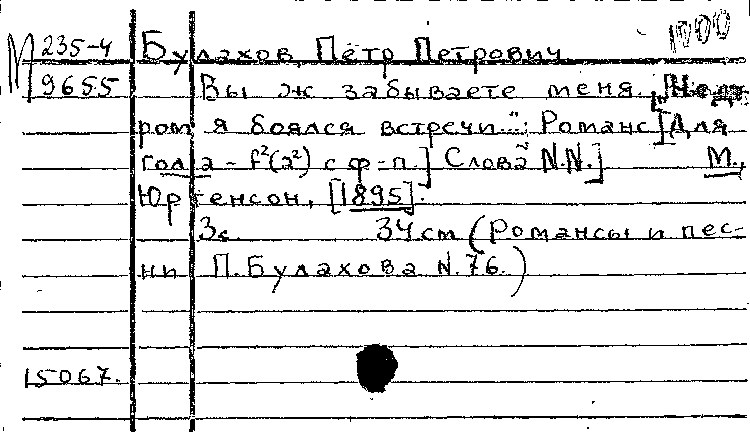 1000
М 235-4 Булахов, Пётр Петрович
9655 Вы ж забываете меня. ["Неда
ром я боялся встречи...": Романс] Для
гол[оса - f²(a²) с ф-п.] Слова N.N.] М.,
Юргенсон, [1895].
3с. 34 см (Романсы и пес-
ни П. Булахова N. 76.)
15067.